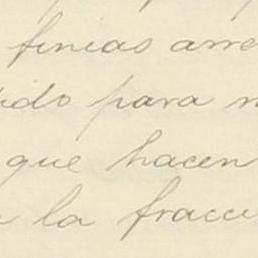 finias arre
ido para n
que hacen
la fracci